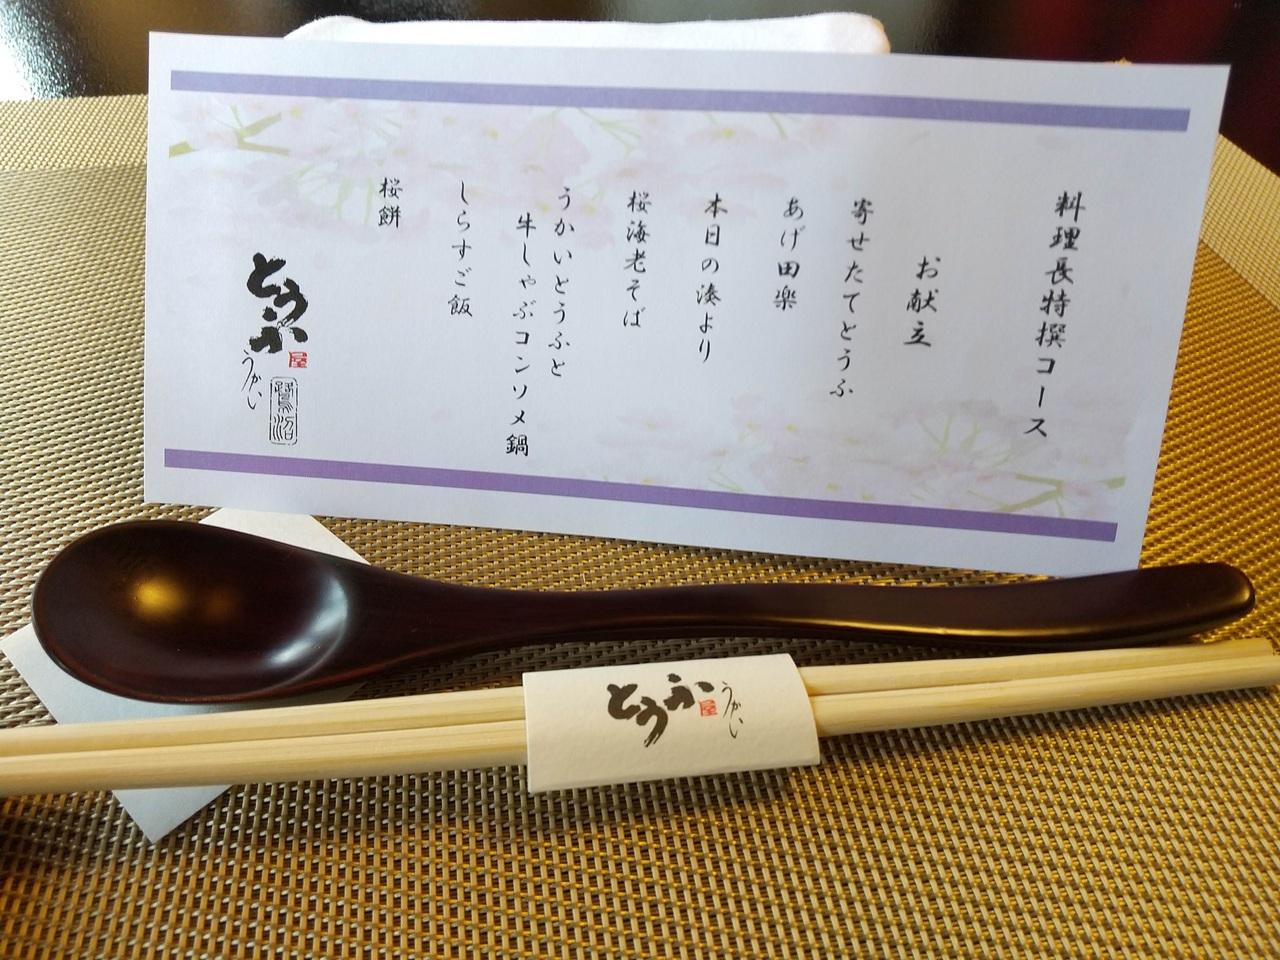 料理長特撰コース
お献立
寄せたてどうふ
あげ田楽
本日の湊より
桜海老そば
うかいとうふと
牛しゃぶコンソメ鍋
しらすご飯
桜餅
とうふ
屋
うかい
鷺沼
とうふ
屋
うかい